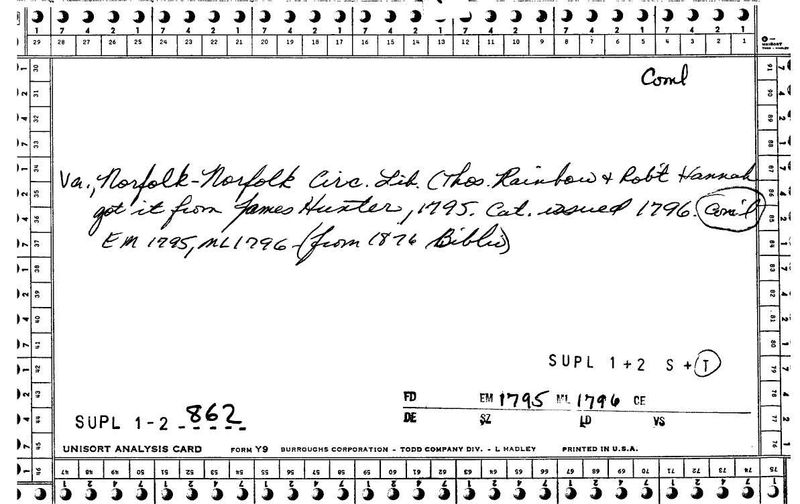 1 7 4 2 1 7 4 2 1 7 4 2 1 7 4 2 1 7 4 2 1 7 4 2 1 7 4 2 1
29 28 27 26 25 24 23 22 21 20 19 18 17 16 15 14 13 12 11 10 9 8 7 6 5 4 3 2 1
UNISORT
Coml
Va., Norfolk-Norfolk Circ. Lib. (Thos. Rainbow + Rob't Hannah
got it from James Hunter, 1795. Cat. issued 1796. Com'l
EM 1795, ML 1796 - (from 1876 Biblio)
SUPL 1+2 S + T
FD EM 1795 ML 1796 CE
DE SZ LD VS
SUPL 1-2 862
UNISORT ANALYSIS CARD FORM Y9 BURROUGHS CORPORATION - TODD COMPANY DIV. - L HADLEY PRINTED IN U.S.A.
30 31 32 33 34 35 36 37 38 39 40 41 42 43 44 45 46
91 90 89 88 87 86 85 84 83 82 81 80 79 78 77 76
47 48 49 50 51 52 53 54 55 56 57 58 59 60 61 62 63 64 65 66 67 68 69 70 71 72 73 74 75